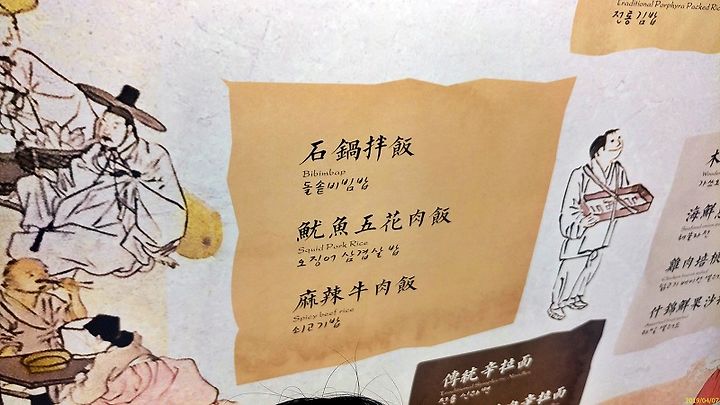 Traditional Porphyra Packed Rice
전통김밥
石鍋拌飯
Bibimbap
돌솥비빔밥
魷魚五花肉飯
Squid Pork Rice
오징어 삼겹살 밥
麻辣牛肉飯
Spicy beef rice
쇠고기밥
海鮮
해물파전
雞肉培根
什錦鮮果沙
傳統辛拉面
전통 신라면
辛拉面
2019/04/07